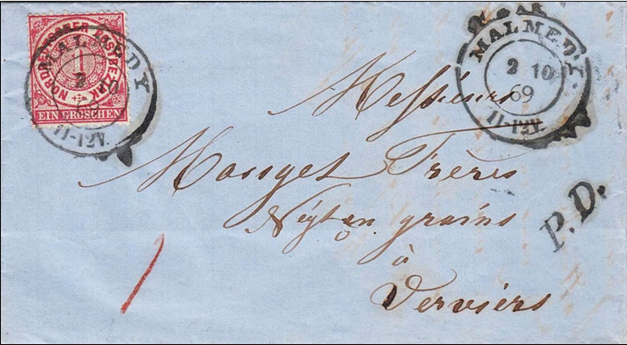 NORDDEUTSCHER POSTBEZIRK
1
EIN GROSCHEN
MALMEDY
11-12V.
MALMEDY
2 10
69
11-12V.
Messieurs
Frères
grains
à
Verviers
P.D.